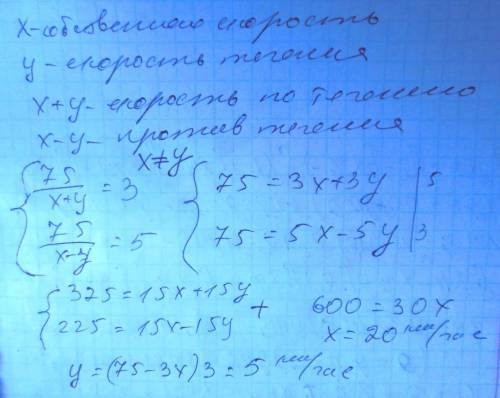 x-собственная скорость
y-скорость течения
x+y- скорость по течению
x-y- против течения
x≠y
{ 75/(x+y) = 3 { 75 = 3x+3y | 5
{ 75/(x-y) = 5 { 75 = 5x-5y | 3
{ 325=15x+15y + 600=30x
{ 225=15x-15y x=20 км/час
y=(75-3x)3=5 км/час